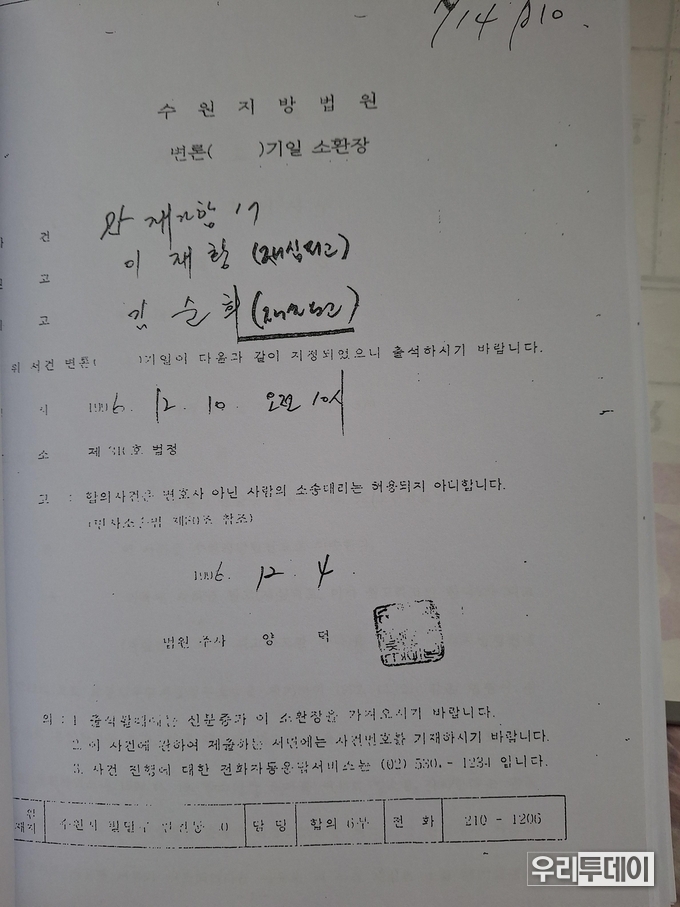 수 원 지 방 법 원
변론( )기일 소환장
건 재가합 17
고 이 재 황 (재심피고)
고 김 순 희
위 사건 변론( )기일이 다음과 같이 지정되었으니 출석하시기 바랍니다.
시 1996. 12. 10. 오전 10시
소 제 호 법정
고 : 합의사건은 변호사 아닌 사람의 소송대리는 허용되지 아니합니다.
(민사소송법 제80조 참조)
1996. 12. 4.
법원 주사 양 덕
의 : 1. 출석할때에는 신분증과 이 소환장을 가져오시기 바랍니다.
2. 이 사건에 관하여 제출하는 서면에는 사건번호를 기재하시기 바랍니다.
3. 사건 진행에 대한 전화자동응답서비스는 (02) 530. - 1234 입니다.
수원시 팔달구 담 당 합의 6부 전 화 210 - 1206
우리투데이